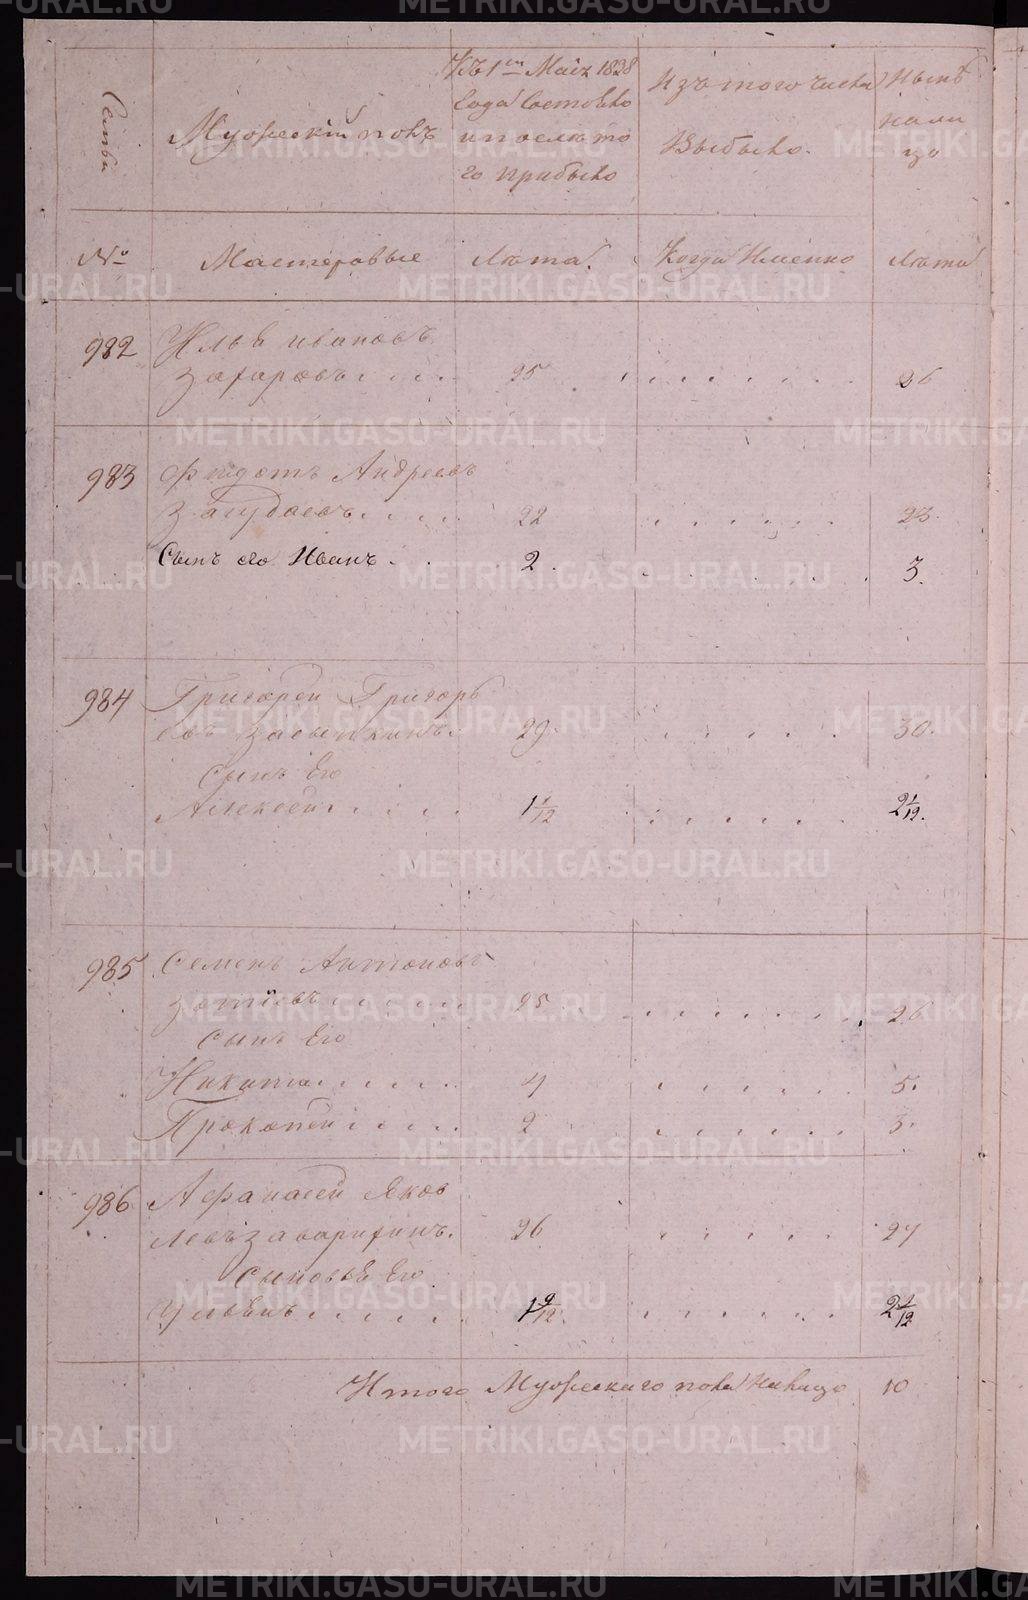 Семьи
Мужескій полъ
Къ 1му Маія 1838
года Состояло
и послѣ то
го прибыло
Изъ того числа
Выбыло.
Нынѣ
нали
цо
№
Мастеровые
Лѣта.
Когда Именно
Лѣта
982 Илья Ивановъ
Захаровъ . . . . 25 . . . . . . . 26
983 Федотъ Андреевъ
22 . . . . . . 23.
Сынъ его Иванъ . . 2 . . . . . . . 3.
984 Григорей Григорь
евъ Засыпкинъ. 29. . . . . . . 30.
Сынъ Его
Алексей . . . . . 1 1/12 . . . . . . 2 1/12.
985 Семенъ Антоновъ
Зотѣевъ . . . . . 25 . . . . . . . 26
Сынъ Его
Никита . . . . . 4 . . . . . . 5.
Прокопей . . . . 2 . . . . . . 3.
986 Афанасей Яков
левъ Заварихинъ. 26 . . . . . 27
Сыновья Его
. . . . . . 1 9/12. . . . . . .
Итого Мужескаго пола Налицо 10
METRIKI.GASO-URAL.RU